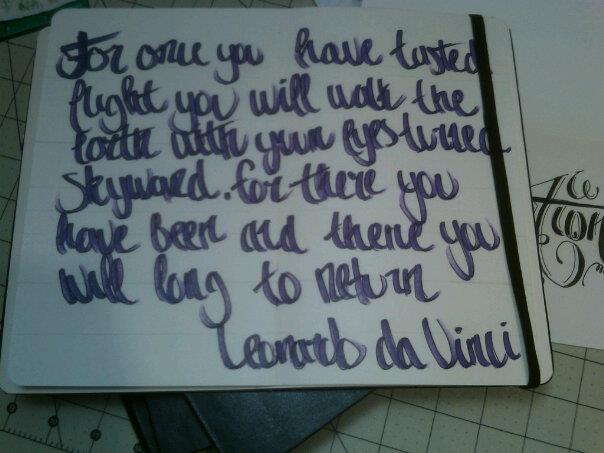 For once you have tasted
flight you will walk the
Earth with your Eyes turned
Skyward. for there you
have been and there you
will long to return
Leonardo da Vinci